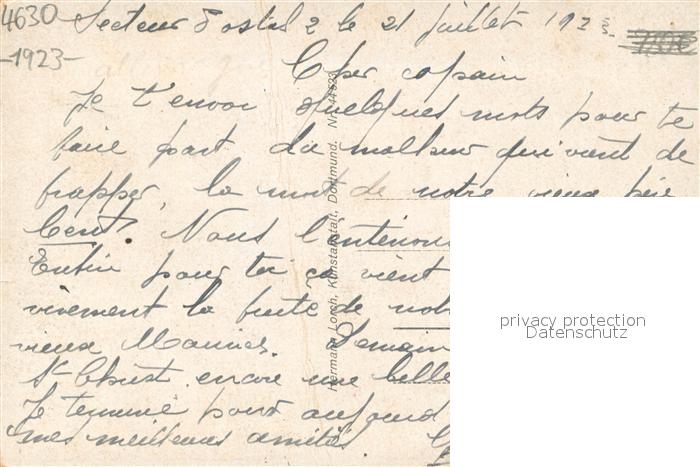 4630
-1923-
Secteur Postal 2 le 21 juillet 1923
Cher copain
Je t'envoi quelques mots pour te
faire part du malheur qui vient de
frapper, la mort de notre vieux père
Nous l'enterrons
Enfin pour toi ça vient
vivement la fuite de notr
vieux
encore une belle
Je termine pour aujourd
mes meilleures amitiés.
Hermann Lorch, Kunstanstalt, Dortmund. Nr. 44623
privacy protection
Datenschutz